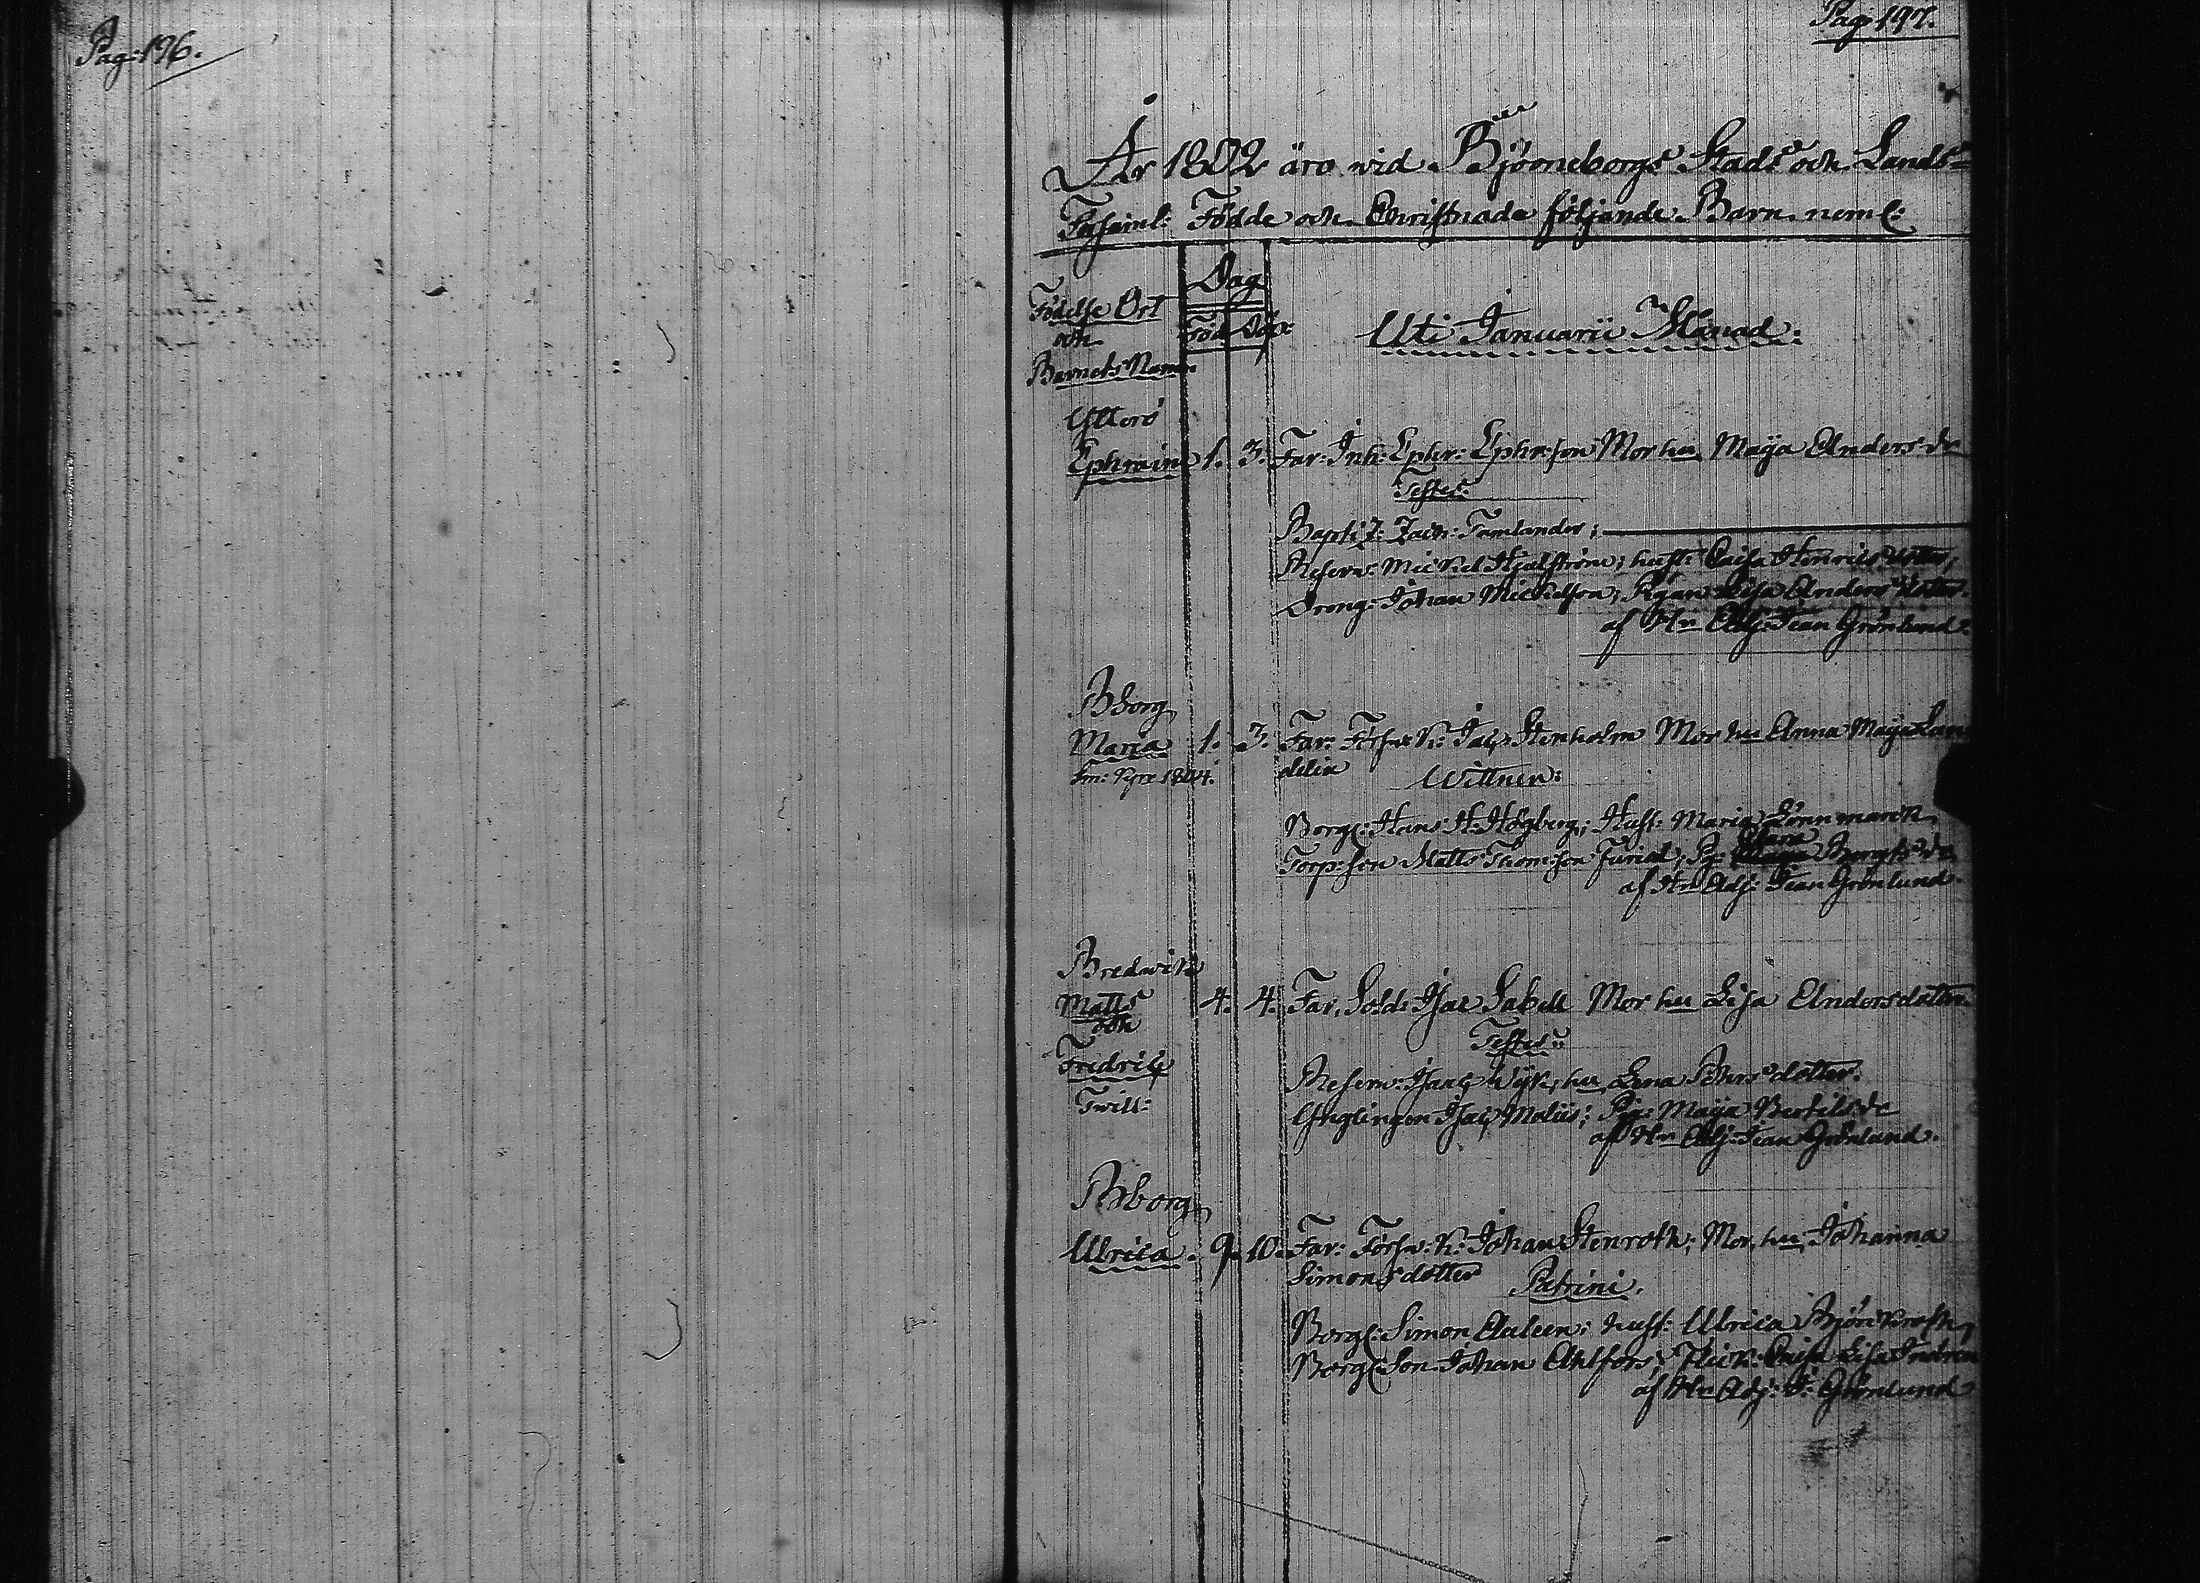 Pag: 196.
Pag: 197.
År 1802 äro wid Björneborgs Stads och Lands-
Församl: Födde och Christnade följande Barn neml:
Födelse Ort
och
Barnets Namn
Dag
Föd: Döp:
Uti Januarii Månad:
Ytterö
Ephraim 1. 3. Far: Inh: Ephr: Ephr:son Mor hu Maya Anders dr
Testes:
Baptiz: Zach: Tamlander;
Reserv: Mickel Hjulström; hust: Caisa Henrics dotter;
Dreng: Johan Mickelson; Pigan Lisa Anders dotter.
af Hr Adj: Jean Grönlund.
Bborg
Maria 1. 3. Far: Försw: K: Jac: Stenholm Mor hu Anna Maya Lan
delin
Wittnen:
Borg: Hans H: Högberg; Hust: Maria Lönnmarck
Torp: son Matts Thomson Furial; Pig: Bengts dr
af Hr Adj: Jean Grönlund.
Bredwik
Matts 4. 4. Far: Sold: Isac Sabell Mor hu Lisa Andersdotter
och
Testes:
Fredric
Twill:
Reserv: Isaac Wijk; hu Lena Pehrs dotter.
Ynglingen Isac Molius; Pig: Maija Bertils dr
af Hr Adj: Jean Grönlund.
Bborg
Ulrica. 9. 10. Far: Försw: K: Johan Stenroth; Mor, hu, Johanna
Simonsdotter
Patrini.
Borg: Simon Auleen; hust: Ulrica Björkqvist,
Borg: Son Johan Ahlfors; Flick: Caisa Lisa Indren
af Hr Adj: J: Grönlund